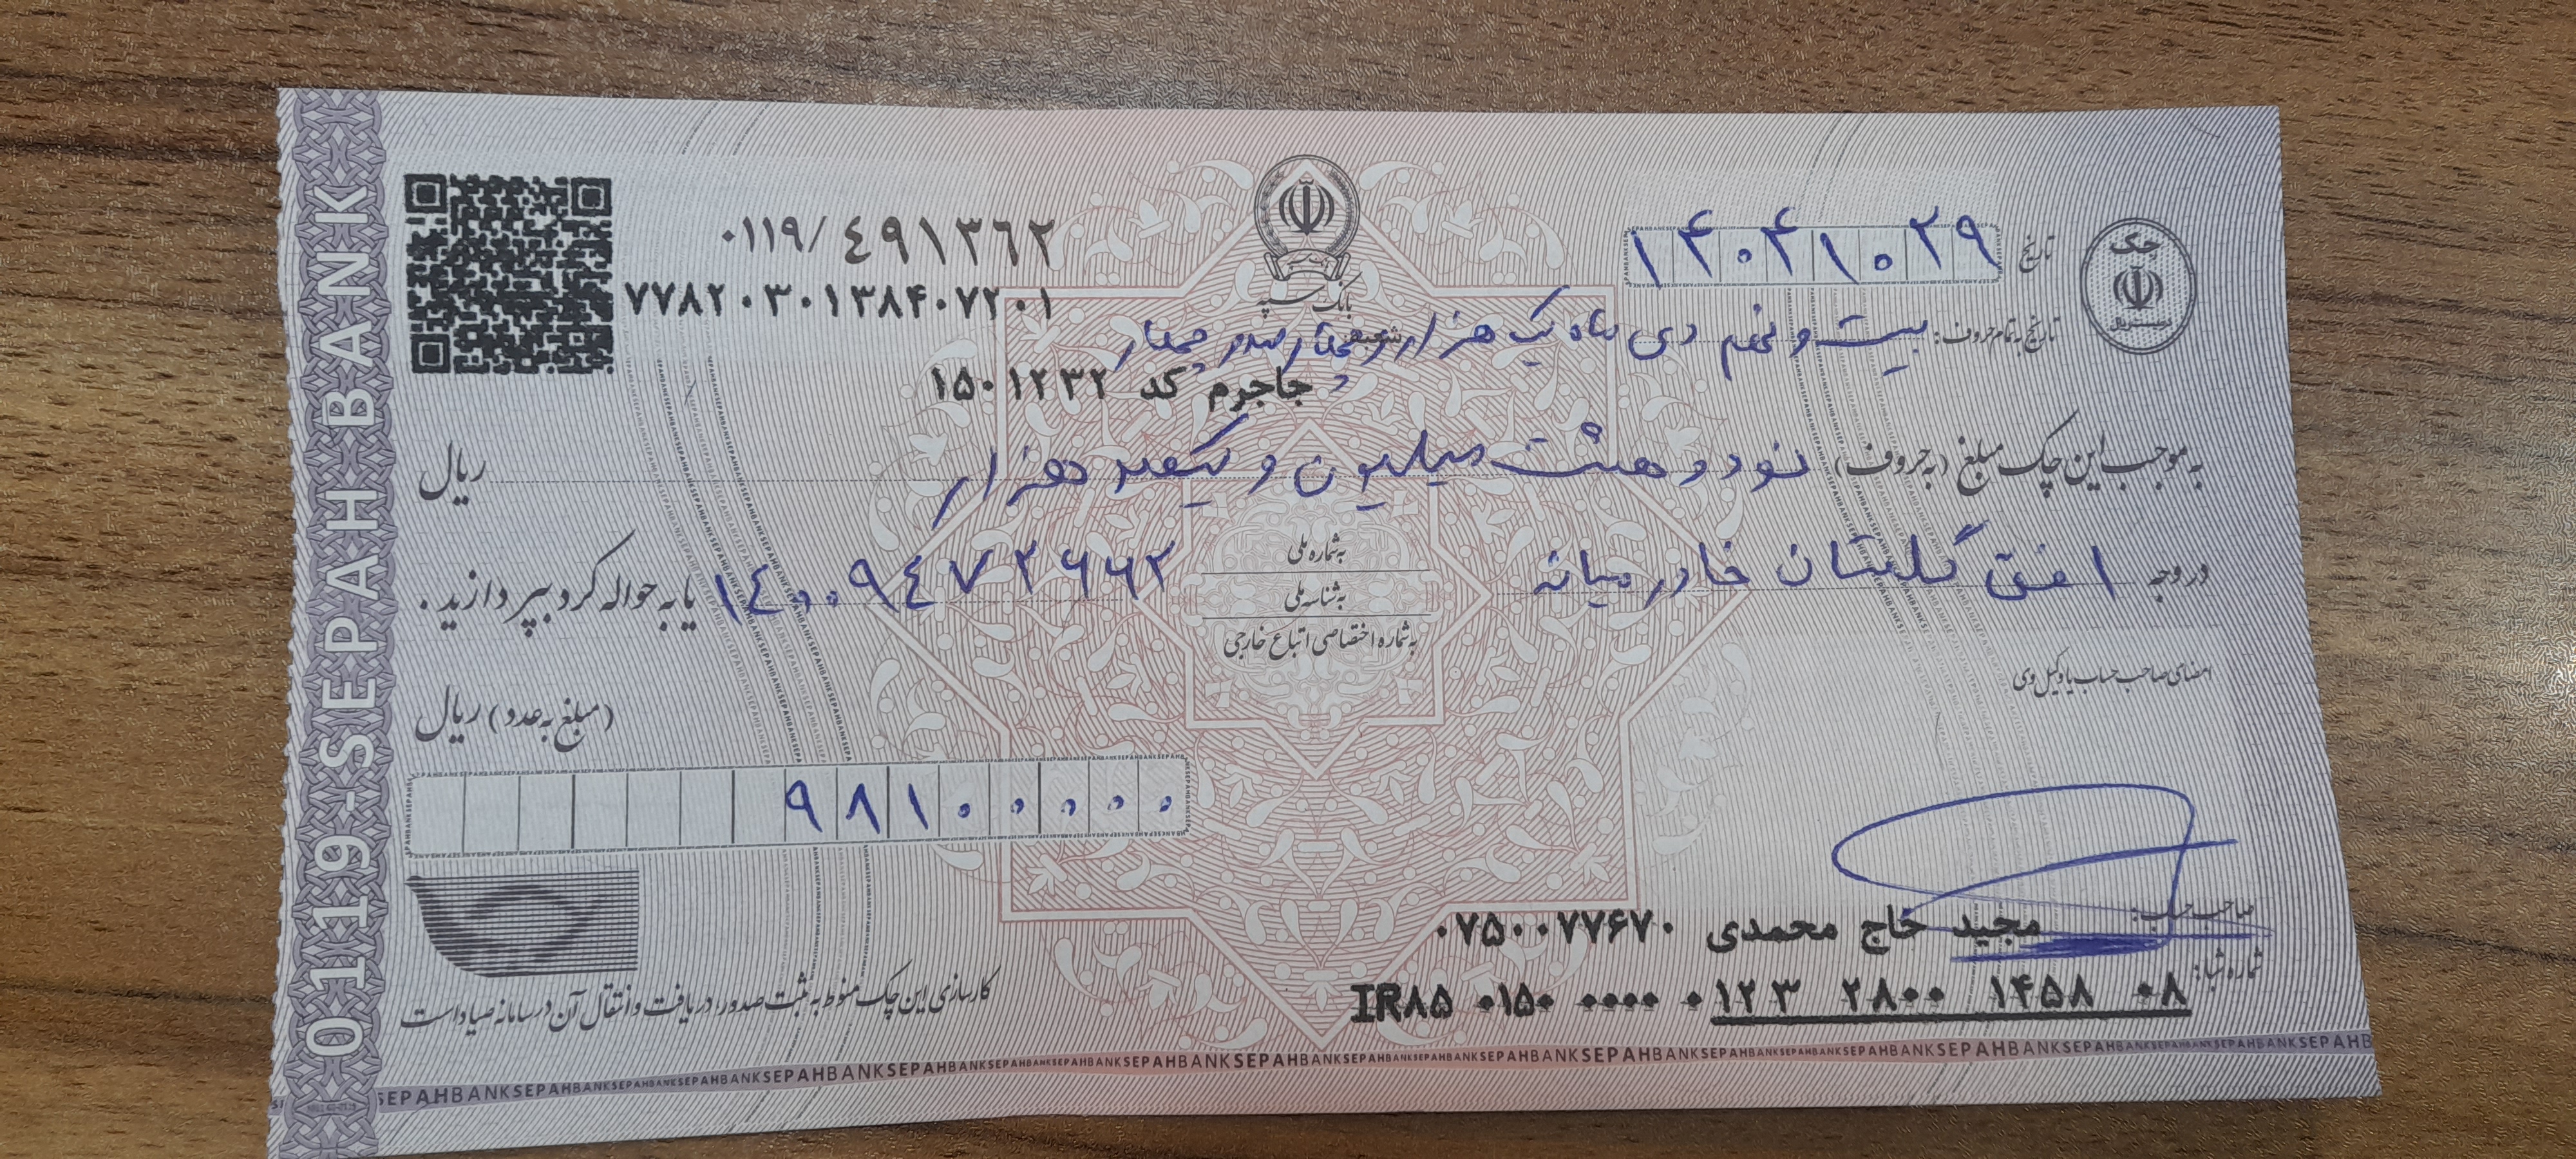 0119-SEPAH BANK
چک
تاریخ ۱۴۰۴۱۰۲۹
بانک سپه
۰۱۱۹/۴۹۱۳۶۲
۷۷۸۲۰۳۰۱۳۸۴۰۷۲۰۱
تاریخ به تمام حروف: بیست و نهم دی ماه یک هزار و چهارصد و چهار
شعبه
جاجرم کد ۱۵۰۱۲۳۲
به موجب این چک مبلغ (به حروف) نود و هشت میلیون و یکصد هزار ریال
در وجه افق گلستان خاور میانه
به شماره ملی
به شناسه ملی
به شماره اختصاصی اتباع خارجی
۱۴۰۰۹۴۷۲۶۶۲ یا به حواله کرد بپردازید.
امضای صاحب حساب یا وکیل وی
(مبلغ به عدد) ریال
۹۸۱۰۰۰۰۰
صاحب حساب: مجید حاج محمدی ۰۷۵۰۰۷۷۶۷۰
شماره شبا: IR۸۵ ۰۱۵۰ ۰۰۰۰ ۰۱۲۳ ۲۸۰۰ ۱۴۵۸ ۰۸
کارسازی این چک منوط به ثبت صدور، دریافت و انتقال آن در سامانه صیاد است
SEPAHBANKSEPAHBANKSEPAHBANKSEPAHBANKSEPAHBANKSEPAHBANK